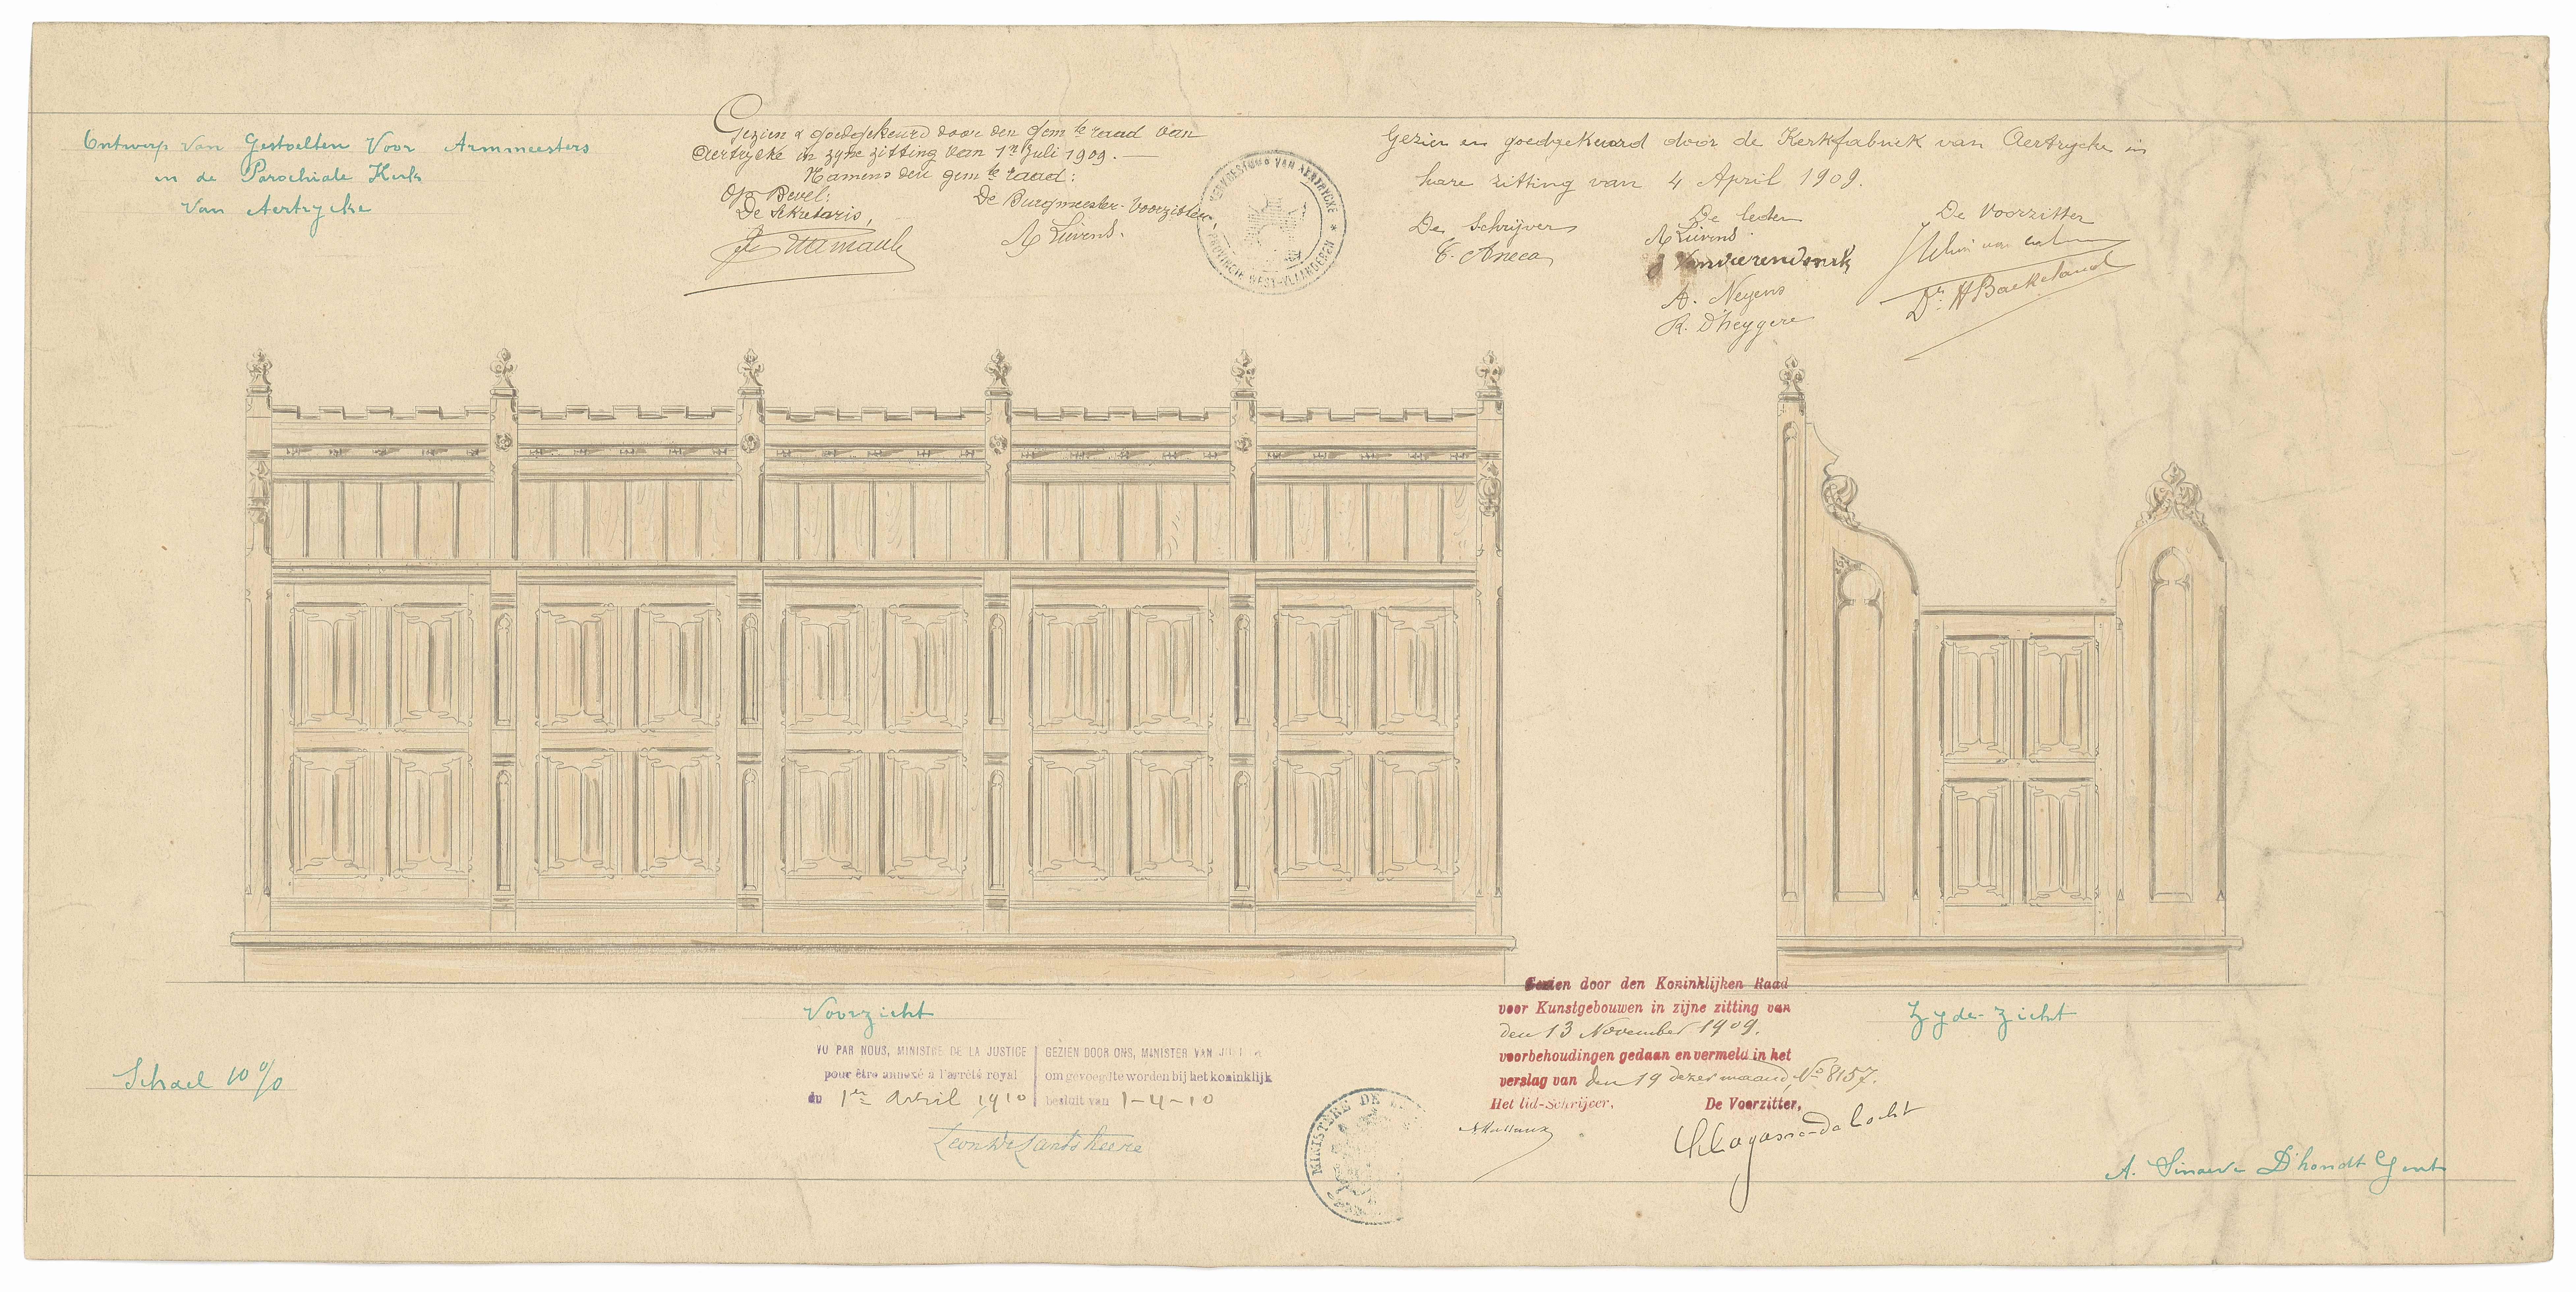 Ontwerp van Gestoelten Voor Armmeesters
in de Parochiale Kerk
Van Aertrycke
Gezien & goedgekeurd door den gem te raad van
Aertrycke in zyne zitting van 1n Juli 1909. —
Namens den gem te raad:
Op Bevel:
De Sekretaris,
De Burgmeester-Voorzitter,
A Lievens.
KERKBESTUUR VAN AERTRYCKE * PROVINCIE WEST-VLAANDEREN *
Gezien en goedgekeurd door de Kerkfabriek van Aertrycke in
hare zitting van 4 April 1909.
De Schrijver
De leden
De Voorzitter
A Lievens
A. Neyens
R. D'heygere
Dr. H Baekeland
Voorzicht
Zyde-zicht
Schael 10 %
VU PAR NOUS, MINISTRE DE LA JUSTICE
pour être annexé à l'arrêté royal
du 1er Avril 1910
GEZIEN DOOR ONS, MINISTER VAN
om gevoegd te worden bij het koninklijk
besluit van 1-4-10
Leon De Lantsheere
MINISTERE DE
Gezien door den Koninklijken Raad
voor Kunstgebouwen in zijne zitting van
den 13 November 1909.
voorbehoudingen gedaan en vermeld in het
verslag van den 19 dezer maand, No 8157.
Het lid-Schrijver,
De Voorzitter,
Lagasse-de Locht
A. Sinaeve D'hondt Gent